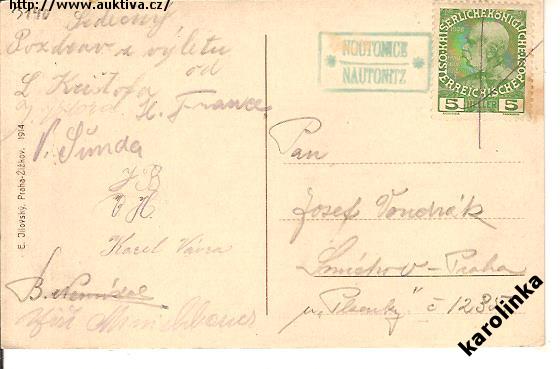 http://www.auktiva.cz/
Srdečný
Pozdrav z výletu
od
L Krištofa
H. France
V. Šunda
J B
Karel Vávra
E. Jílovský, Praha-Žižkov. 1914
NOUTONICE
NAUTONITZ
KAISERLICHE KÖNIGLICHE
ÖSTERREICHISCHE POST
1908
5 HELLER 5
Pan
Josef Vondrák
Smíchov–Praha
u „Plzenky" č 1238
karolinka